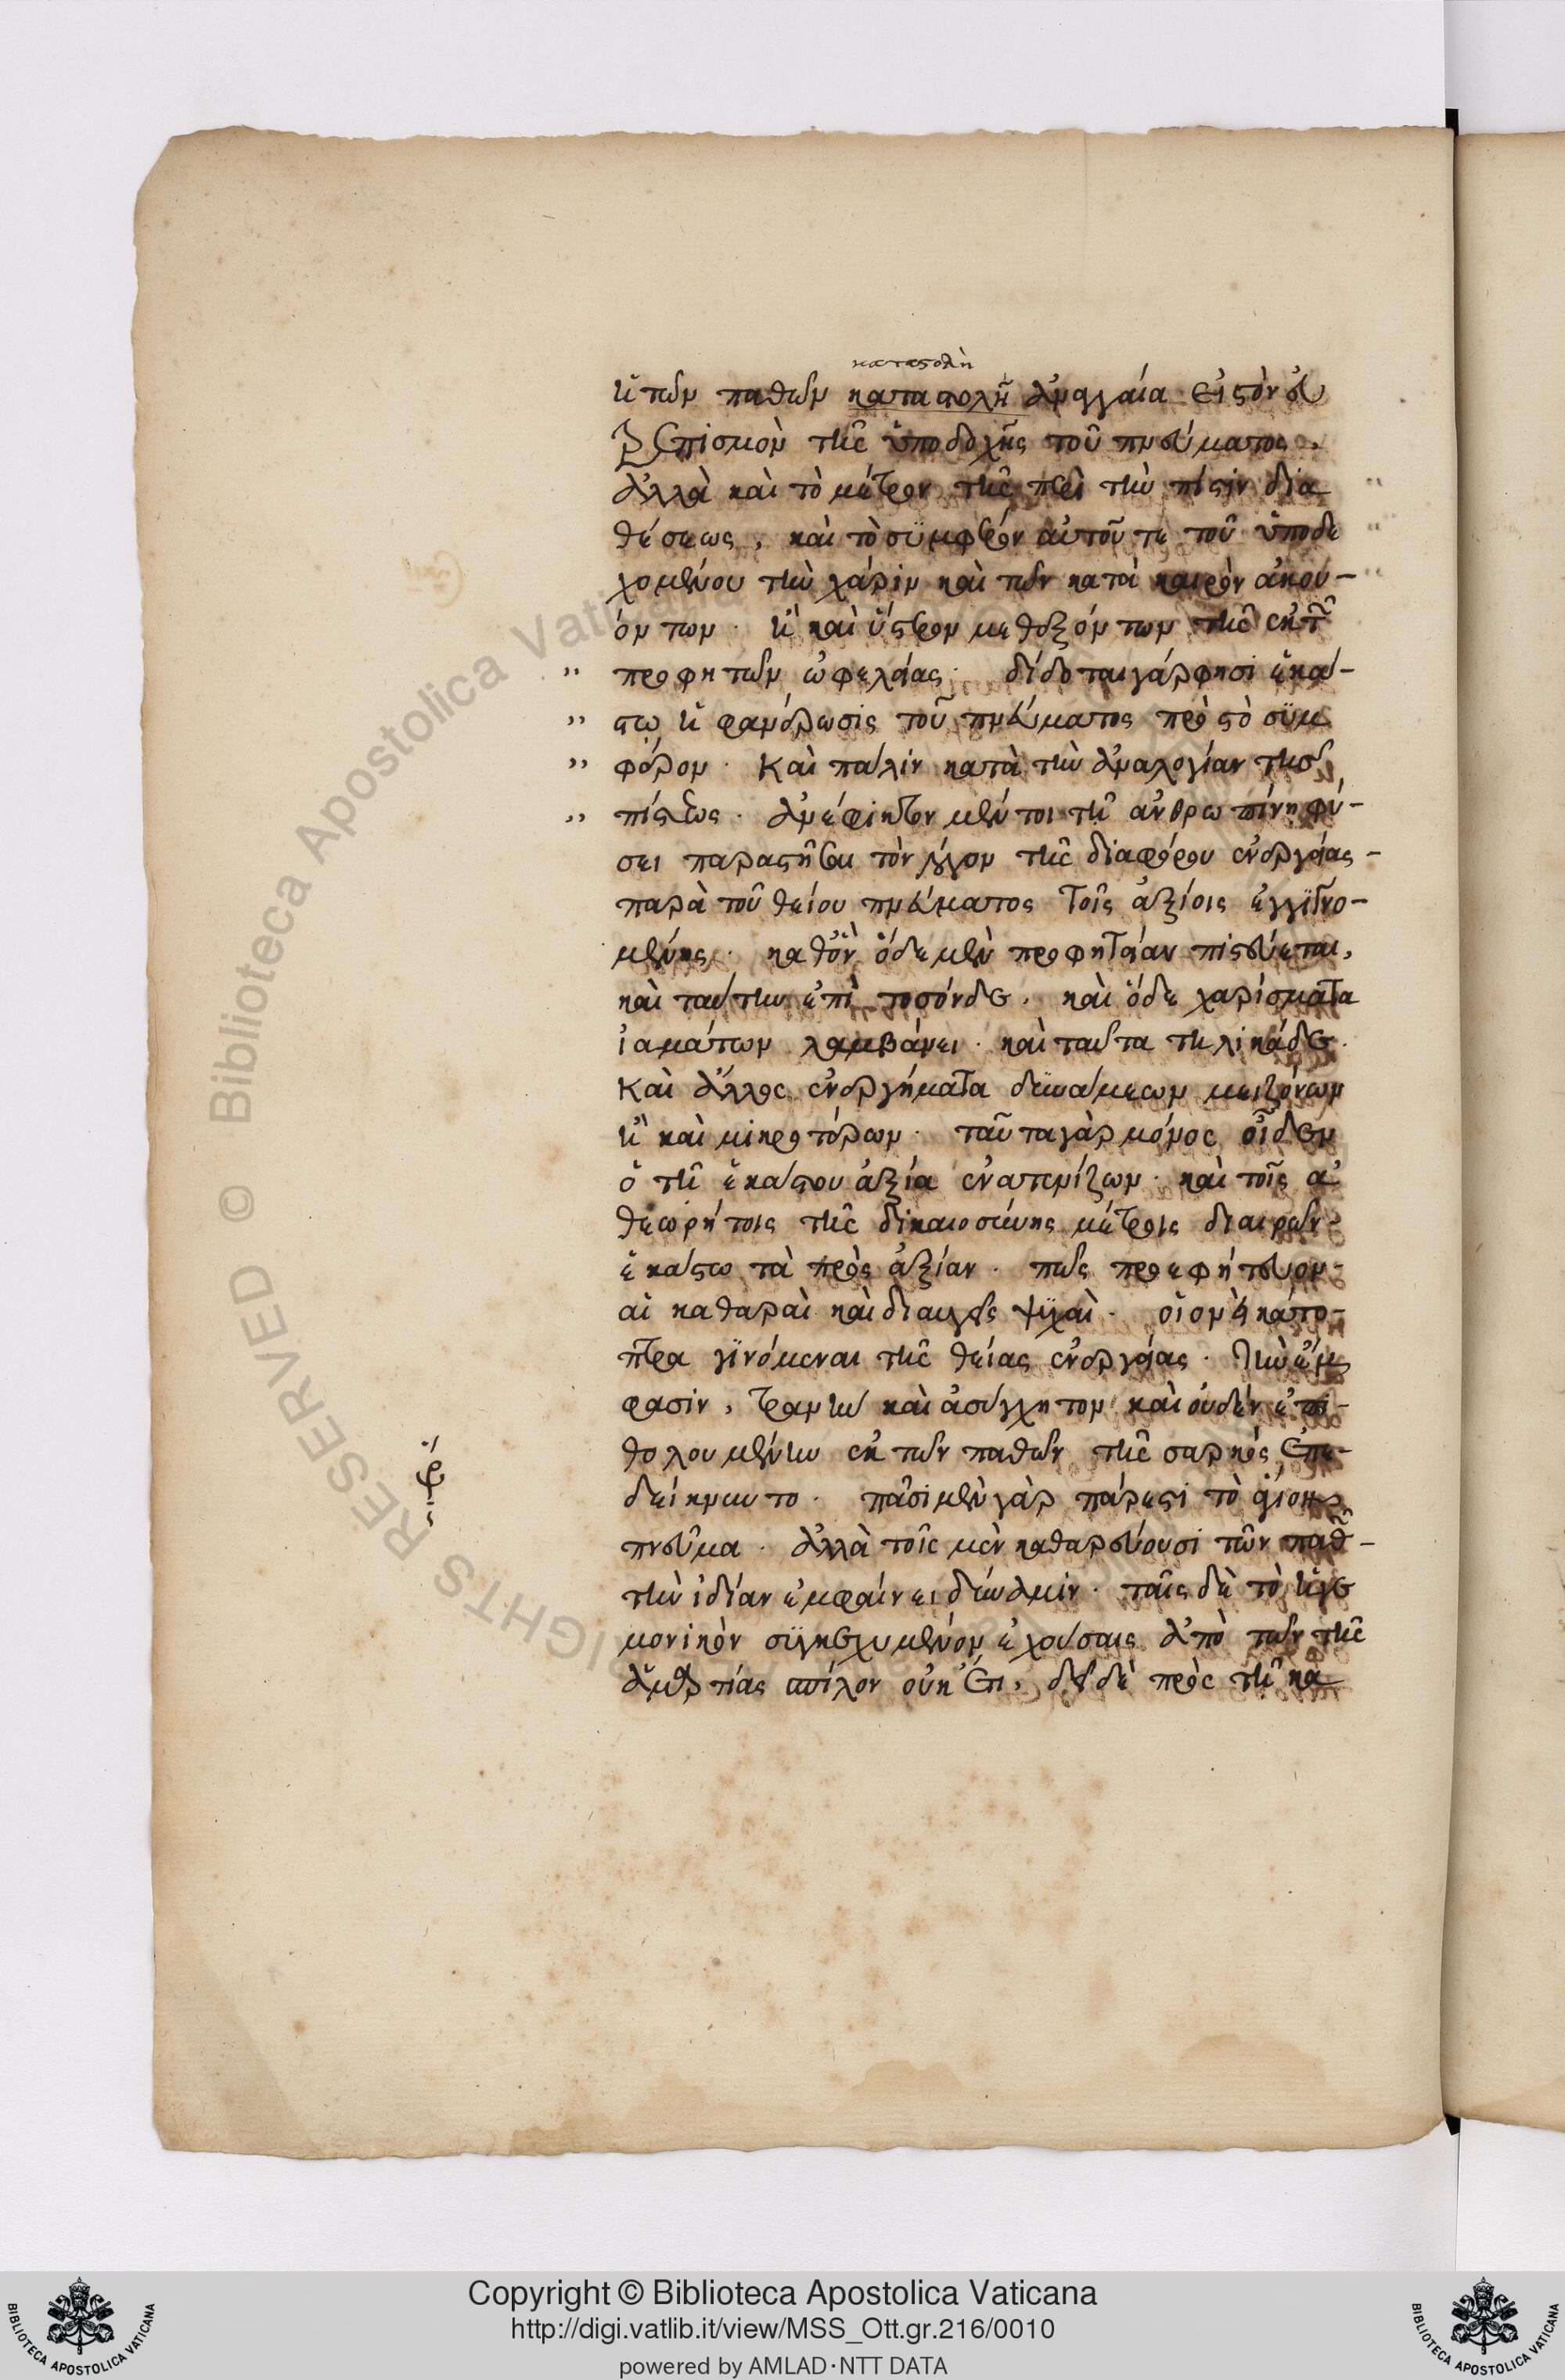 καταστολὴ
ἡ τῶν παθῶν καταστολὴ ἀναγκαία εἰς τὸν εὐ
τρεπισμὸν τῆς ὑποδοχῆς τοῦ πνεύματος,
ἀλλὰ καὶ τὸ μέτρον τῆς περὶ τὴν πίστιν δια
θέσεως, καὶ τὸ συμφέρον αὐτοῦ τε τοῦ ὑποδε
χομένου τὴν χάριν καὶ τῶν κατὰ καιρὸν ἀκου-
όντων· ἢ καὶ ὕστερον μεθεξόντων τῆς ἐκ τῶν
προφητῶν ὠφελείας· δίδοται γάρ φησι ἑκά-
στω ἡ φανέρωσις τοῦ πνεύματος πρὸς τὸ συμ
φέρον· Καὶ πάλιν κατὰ τὴν ἀναλογίαν τῆς
πίστεως· ἀνέφικτον μέντοι τῆ ἀνθρωπίνη φύ-
σει παραστῆσαι τὸν λόγον τῆς διαφόρου ἐνεργείας-
παρὰ τοῦ θείου πνεύματος τοῖς ἀξίοις ἐγγινο-
μένης· καθὸν ὅδε μὲν προφητείαν πιστεύεται,
καὶ ταύτην ἐπὶ τοσόνδε· καὶ ὅδε χαρίσματα
ἰαμάτων λαμβάνει· καὶ ταῦτα τηλικάδε·
Καὶ ἄλλος ἐνεργήματα δυνάμεων μειζόνων
ἢ καὶ μικροτέρων· ταῦτα γὰρ μόνος οἶδεν
ὁ τῆ ἑκάστου ἀξία ἐνατενίζων· καὶ τοῖς ἀ
θεωρήτοις τῆς δικαιοσύνης μέτροις διαιρῶν-
ἑκάστω τὰ πρὸς ἀξίαν· πῶς προεφήτευον-
αἱ καθαραὶ καὶ διαυγεῖς ψυχαὶ· οἱονεὶ κάτο-
πτρα γινόμεναι τῆς θείας ἐνεργείας· τὴν ἔμ
φασιν, τρανὴν καὶ ἀσύγχητον καὶ οὐδὲν ἐπι-
θολουμένην ἐκ τῶν παθῶν τῆς σαρκὸς ἐπε-
δείκνυντο· πᾶσι μὲν γὰρ πάρεστι τὸ ἅγιον
πνεῦμα· ἀλλὰ τοῖς μὲν καθαρεύουσι τῶν παθ-
τὴν ἰδίαν ἐμφαίνει δύναμιν· ταῖς δὲ τὸ ἡγε
μονικὸν συγκεχυμένον ἐχούσαις ἀπὸ τῶν τῆς
ἁμαρτίας σπίλον οὐκ ἔτι, δεῖ δὲ πρὸς τῆ κα
Copyright © Biblioteca Apostolica Vaticana
http://digi.vatlib.it/view/MSS_Ott.gr.216/0010
powered by AMLAD·NTT DATA
BIBLIOTECA APOSTOLICA VATICANA
BIBLIOTECA APOSTOLICA VATICANA
RIGHTS RESERVED © Biblioteca Apostolica Vaticana